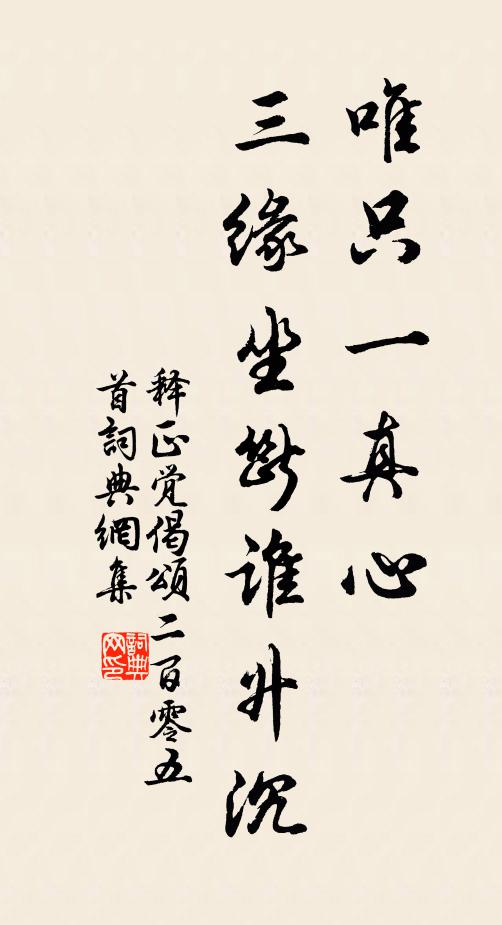 唯只一真心
三缘坐断谁升沉
释正觉偈頌二百零五
首詞典網集
詞典网印